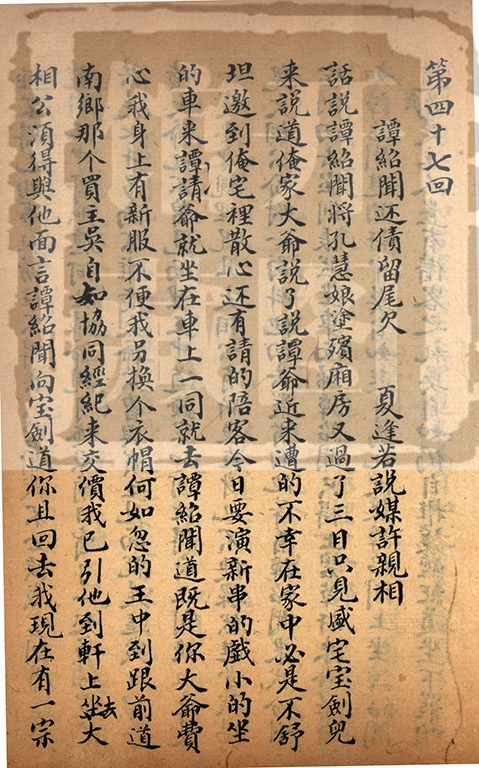 第四十七回
譚紹聞还債留尾欠　夏逢若説媒許親相
話説譚紹聞將孔慧娘塗殯廂房又過了三日只見盛宅宝劍兒
来説道俺家大爺説了説譚爺近来遭的不幸在家中必是不舒
坦邀到俺宅裡散心还有請的陪客今日要演新串的戲小的坐
的車来譚請爺就坐在車上一同就去譚紹聞道既是你大爺費
心我身上有新服不便我另換个衣帽何如忽的王中到跟前道
南鄉那个買主吳自知協同經紀来交價我已引他到軒上坐去大
相公湏得與他面言譚紹聞向宝劍道你且回去我現在有一宗